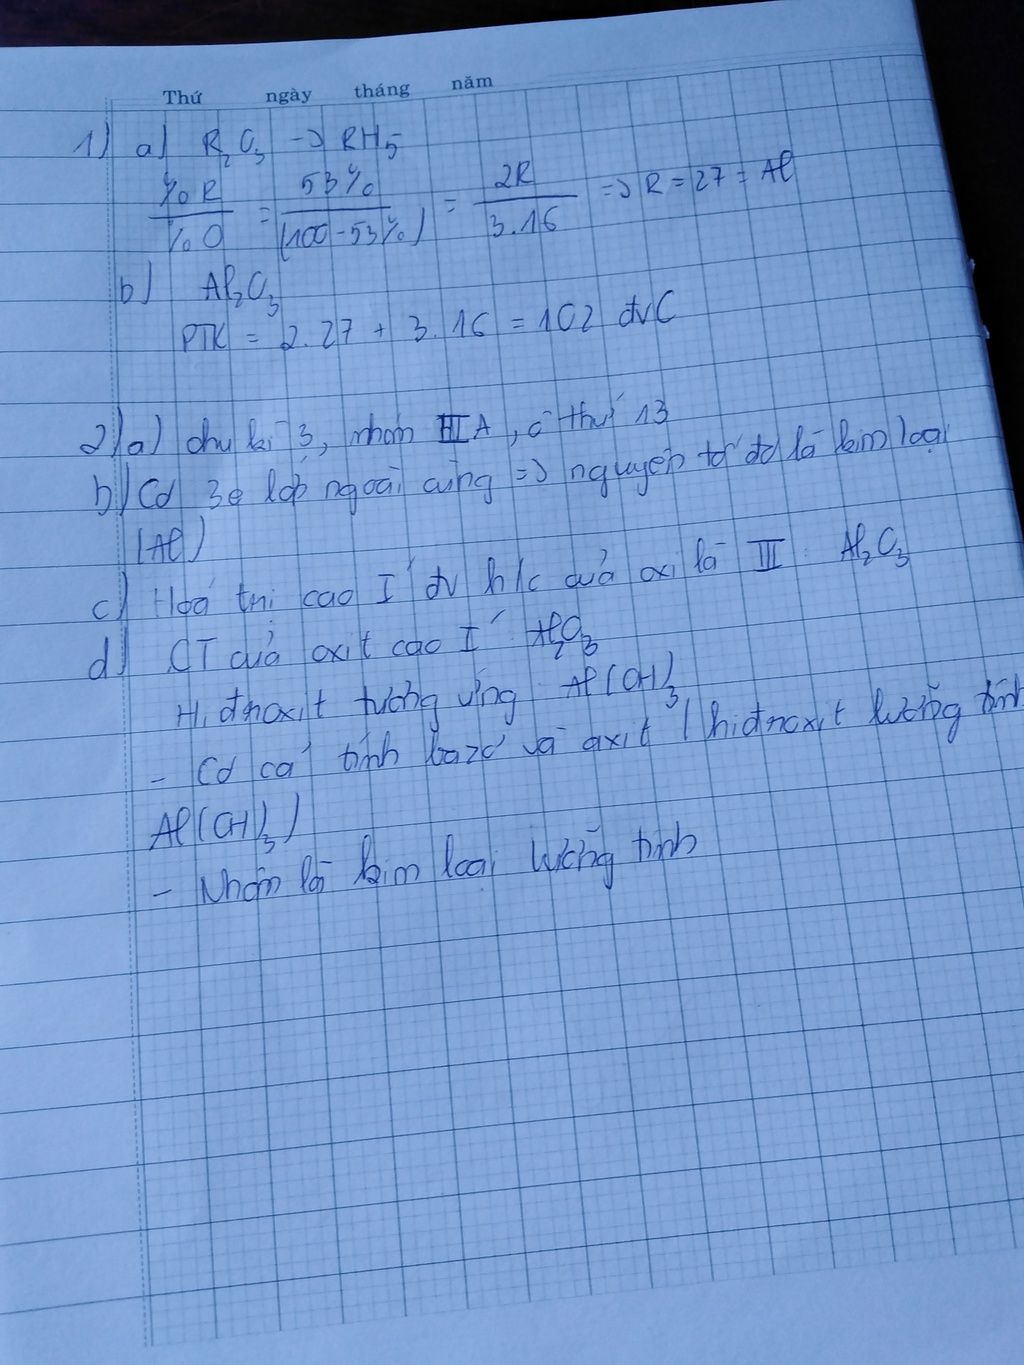 Thứ ngày tháng năm
1) a) R₂O₃ → RH₅
%R / %O = 53% / (100-53%) = 2R / 3.16 => R = 27 = Al
b) Al₂O₃
PTK = 2.27 + 3.16 = 102 đvC
2) a) chu kì 3, nhóm IIIA, ô thứ 13
b) Có 3e lớp ngoài cùng => nguyên tố đó là kim loại
(Al)
c) Hoá trị cao I' đv h/c của oxi là III Al₂O₃
d) CT của oxit cao I' Al₂O₃
Hiđroxit tương ứng Al(OH)₃
- Có cả tính bazơ và axit (hiđroxit lưỡng tính
Al(OH)₃)
- Nhôm là kim loại lưỡng tính